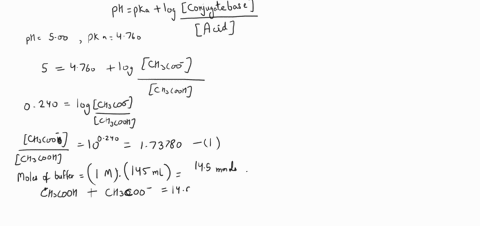 pH = pKa + log [Conjugate base] / [Acid]
pH = 5.00 , pKa = 4.760
5 = 4.760 + log [CH3COO-] / [CH3COOH]
0.240 = log [CH3COO-] / [CH3COOH]
[CH3COO-] / [CH3COOH] = 10^0.240 = 1.73780 - (1)
Moles of buffer = (1 M). (145 mL) = 14.5 mmole .
CH3COOH + CH3COO- = 14.